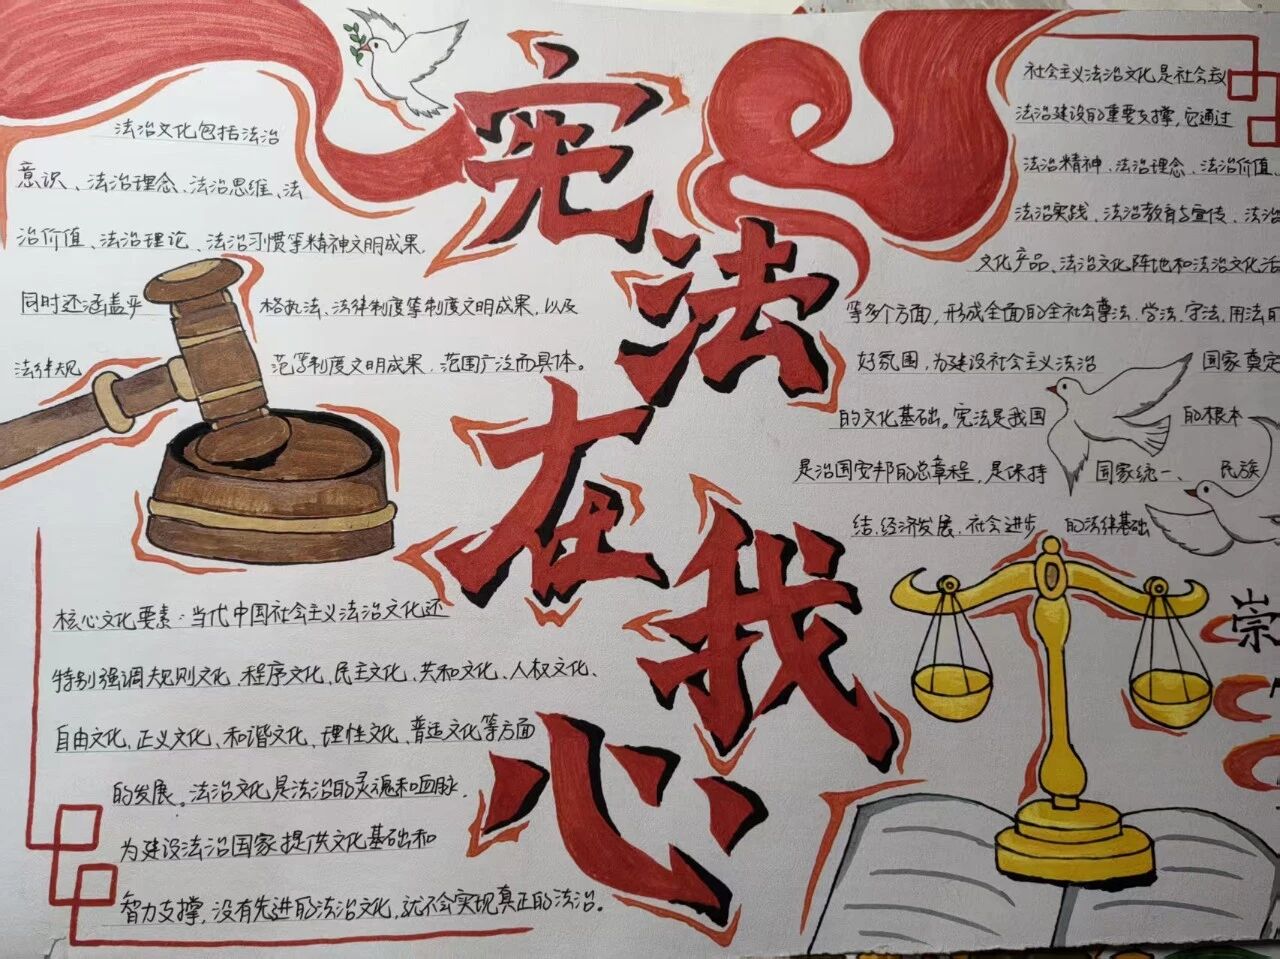 宪法在我心
法治文化包括法治
意识、法治理念、法治思维、法
治价值、法治理论、法治习惯等精神文明成果.
同时还涵盖严 格执法、法律制度等制度文明成果,以及
法律规 范等制度文明成果.范围广泛而具体。
核心文化要素:当代中国社会主义法治文化还
特别强调规则文化、程序文化、民主文化、共和文化、人权文化、
自由文化、正义文化、和谐文化、理性文化、普适文化等方面
的发展。法治文化是法治的灵魂和血脉.
为建设法治国家提供文化基础和
智力支撑,没有先进的法治文化,就不会实现真正的法治。
社会主义法治文化是社会主义
法治建设的重要支撑,它通过
法治精神、法治理念、法治价值、
法治实践、法治教育与宣传、法治
文化产品、法治文化阵地和法治文化活
等多个方面,形成全面的全社会尊法、学法、守法、用法的
好氛围,为建设社会主义法治 国家奠定
的文化基础。宪法是我国 的根本
是治国安邦的总章程,是保持 国家统一、 民族
结、经济发展、社会进步 的法律基础
崇